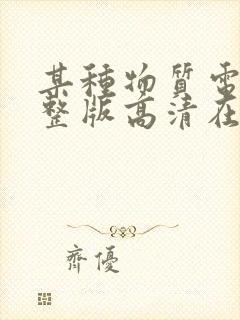 某種物質電
整版高清在
齊優